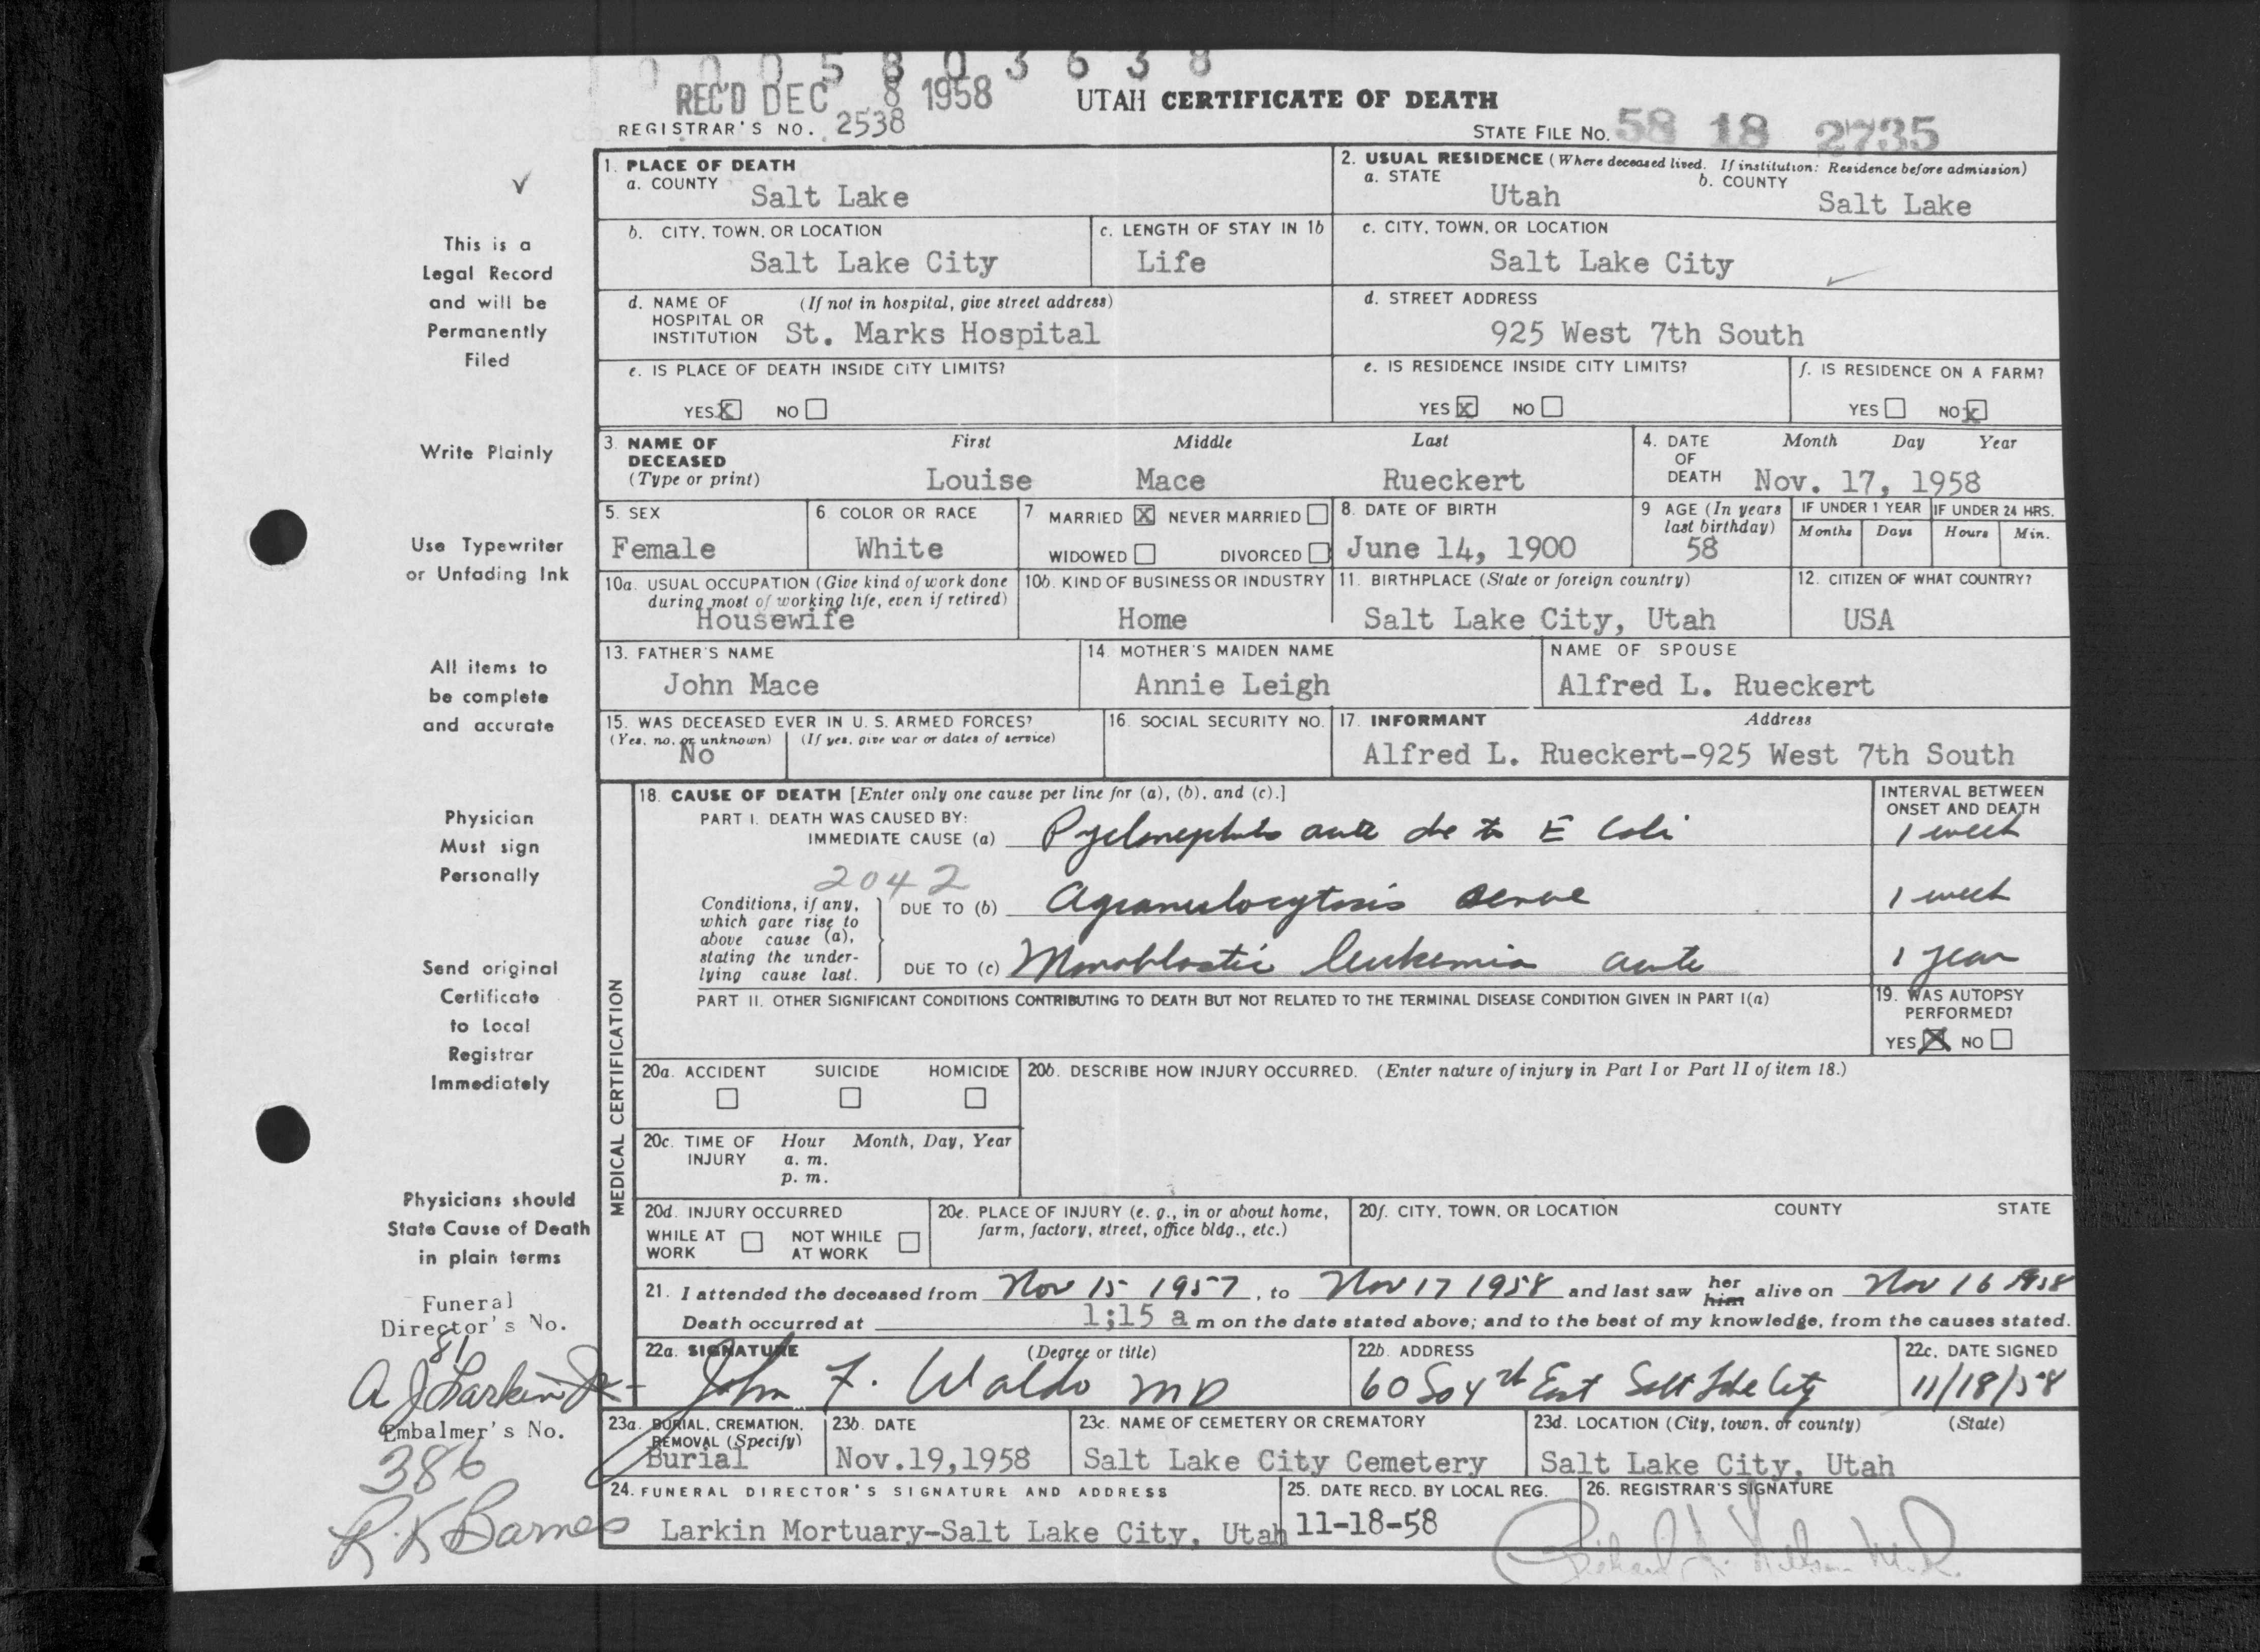 0 0 0 5 8 0 3 6 3 8
REC'D DEC 8 1958 UTAH CERTIFICATE OF DEATH
REGISTRAR'S NO. 2538 STATE FILE NO. 58 18 2735
1. PLACE OF DEATH
a. COUNTY Salt Lake
2. USUAL RESIDENCE (Where deceased lived. If institution: Residence before admission)
a. STATE Utah b. COUNTY Salt Lake
b. CITY, TOWN, OR LOCATION Salt Lake City
c. LENGTH OF STAY IN 1b Life
c. CITY, TOWN, OR LOCATION Salt Lake City
d. NAME OF (If not in hospital, give street address)
HOSPITAL OR
INSTITUTION St. Marks Hospital
d. STREET ADDRESS
925 West 7th South
e. IS PLACE OF DEATH INSIDE CITY LIMITS?
YES X NO
e. IS RESIDENCE INSIDE CITY LIMITS?
YES X NO
f. IS RESIDENCE ON A FARM?
YES NO X
3. NAME OF DECEASED (Type or print)
First Middle Last
Louise Mace Rueckert
4. DATE OF DEATH Month Day Year
Nov. 17, 1958
5. SEX
Female
6. COLOR OR RACE
White
7 MARRIED X NEVER MARRIED
WIDOWED DIVORCED
8. DATE OF BIRTH
June 14, 1900
9 AGE (In years last birthday)
58
IF UNDER 1 YEAR IF UNDER 24 HRS.
Months Days Hours Min.
10a. USUAL OCCUPATION (Give kind of work done
during most of working life, even if retired)
Housewife
10b. KIND OF BUSINESS OR INDUSTRY
Home
11. BIRTHPLACE (State or foreign country)
Salt Lake City, Utah
12. CITIZEN OF WHAT COUNTRY?
USA
13. FATHER'S NAME
John Mace
14. MOTHER'S MAIDEN NAME
Annie Leigh
NAME OF SPOUSE
Alfred L. Rueckert
15. WAS DECEASED EVER IN U. S. ARMED FORCES?
(Yes, no, or unknown) (If yes, give war or dates of service)
No
16. SOCIAL SECURITY NO.
17. INFORMANT Address
Alfred L. Rueckert-925 West 7th South
MEDICAL CERTIFICATION
18. CAUSE OF DEATH [Enter only one cause per line for (a), (b), and (c).]
INTERVAL BETWEEN
ONSET AND DEATH
PART I. DEATH WAS CAUSED BY:
IMMEDIATE CAUSE (a) Pyelonephritis acute due to E Coli 1 week
2042
Conditions, if any,
which gave rise to
above cause (a),
stating the under-
lying cause last.
DUE TO (b) Agranulocytosis 1 week
DUE TO (c) Monoblastic leukemia acute 1 year
PART II. OTHER SIGNIFICANT CONDITIONS CONTRIBUTING TO DEATH BUT NOT RELATED TO THE TERMINAL DISEASE CONDITION GIVEN IN PART I(a)
19. WAS AUTOPSY
PERFORMED?
YES X NO
20a. ACCIDENT SUICIDE HOMICIDE
20b. DESCRIBE HOW INJURY OCCURRED. (Enter nature of injury in Part I or Part II of item 18.)
20c. TIME OF INJURY Hour Month, Day, Year
a. m.
p. m.
20d. INJURY OCCURRED
WHILE AT WORK NOT WHILE AT WORK
20e. PLACE OF INJURY (e. g., in or about home,
farm, factory, street, office bldg., etc.)
20f. CITY, TOWN, OR LOCATION COUNTY STATE
21. I attended the deceased from Nov 15 1957, to Nov 17 1958 and last saw her him alive on Nov 16 1958
Death occurred at 1;15 a m on the date stated above; and to the best of my knowledge, from the causes stated.
22a. SIGNATURE (Degree or title)
John F. Waldo MD
22b. ADDRESS
60 So 4th East Salt Lake City
22c. DATE SIGNED
11/18/58
23a. BURIAL, CREMATION,
REMOVAL (Specify)
Burial
23b. DATE
Nov.19,1958
23c. NAME OF CEMETERY OR CREMATORY
Salt Lake City Cemetery
23d. LOCATION (City, town, or county) (State)
Salt Lake City, Utah
24. FUNERAL DIRECTOR'S SIGNATURE AND ADDRESS
Larkin Mortuary-Salt Lake City, Utah
25. DATE RECD. BY LOCAL REG.
11-18-58
26. REGISTRAR'S SIGNATURE
This is a
Legal Record
and will be
Permanently
Filed
Write Plainly
Use Typewriter
or Unfading Ink
All items to
be complete
and accurate
Physician
Must sign
Personally
Send original
Certificate
to Local
Registrar
Immediately
Physicians should
State Cause of Death
in plain terms
Funeral
Director's No.
81
A J Larkin Jr
Embalmer's No.
386
R. K Barnes